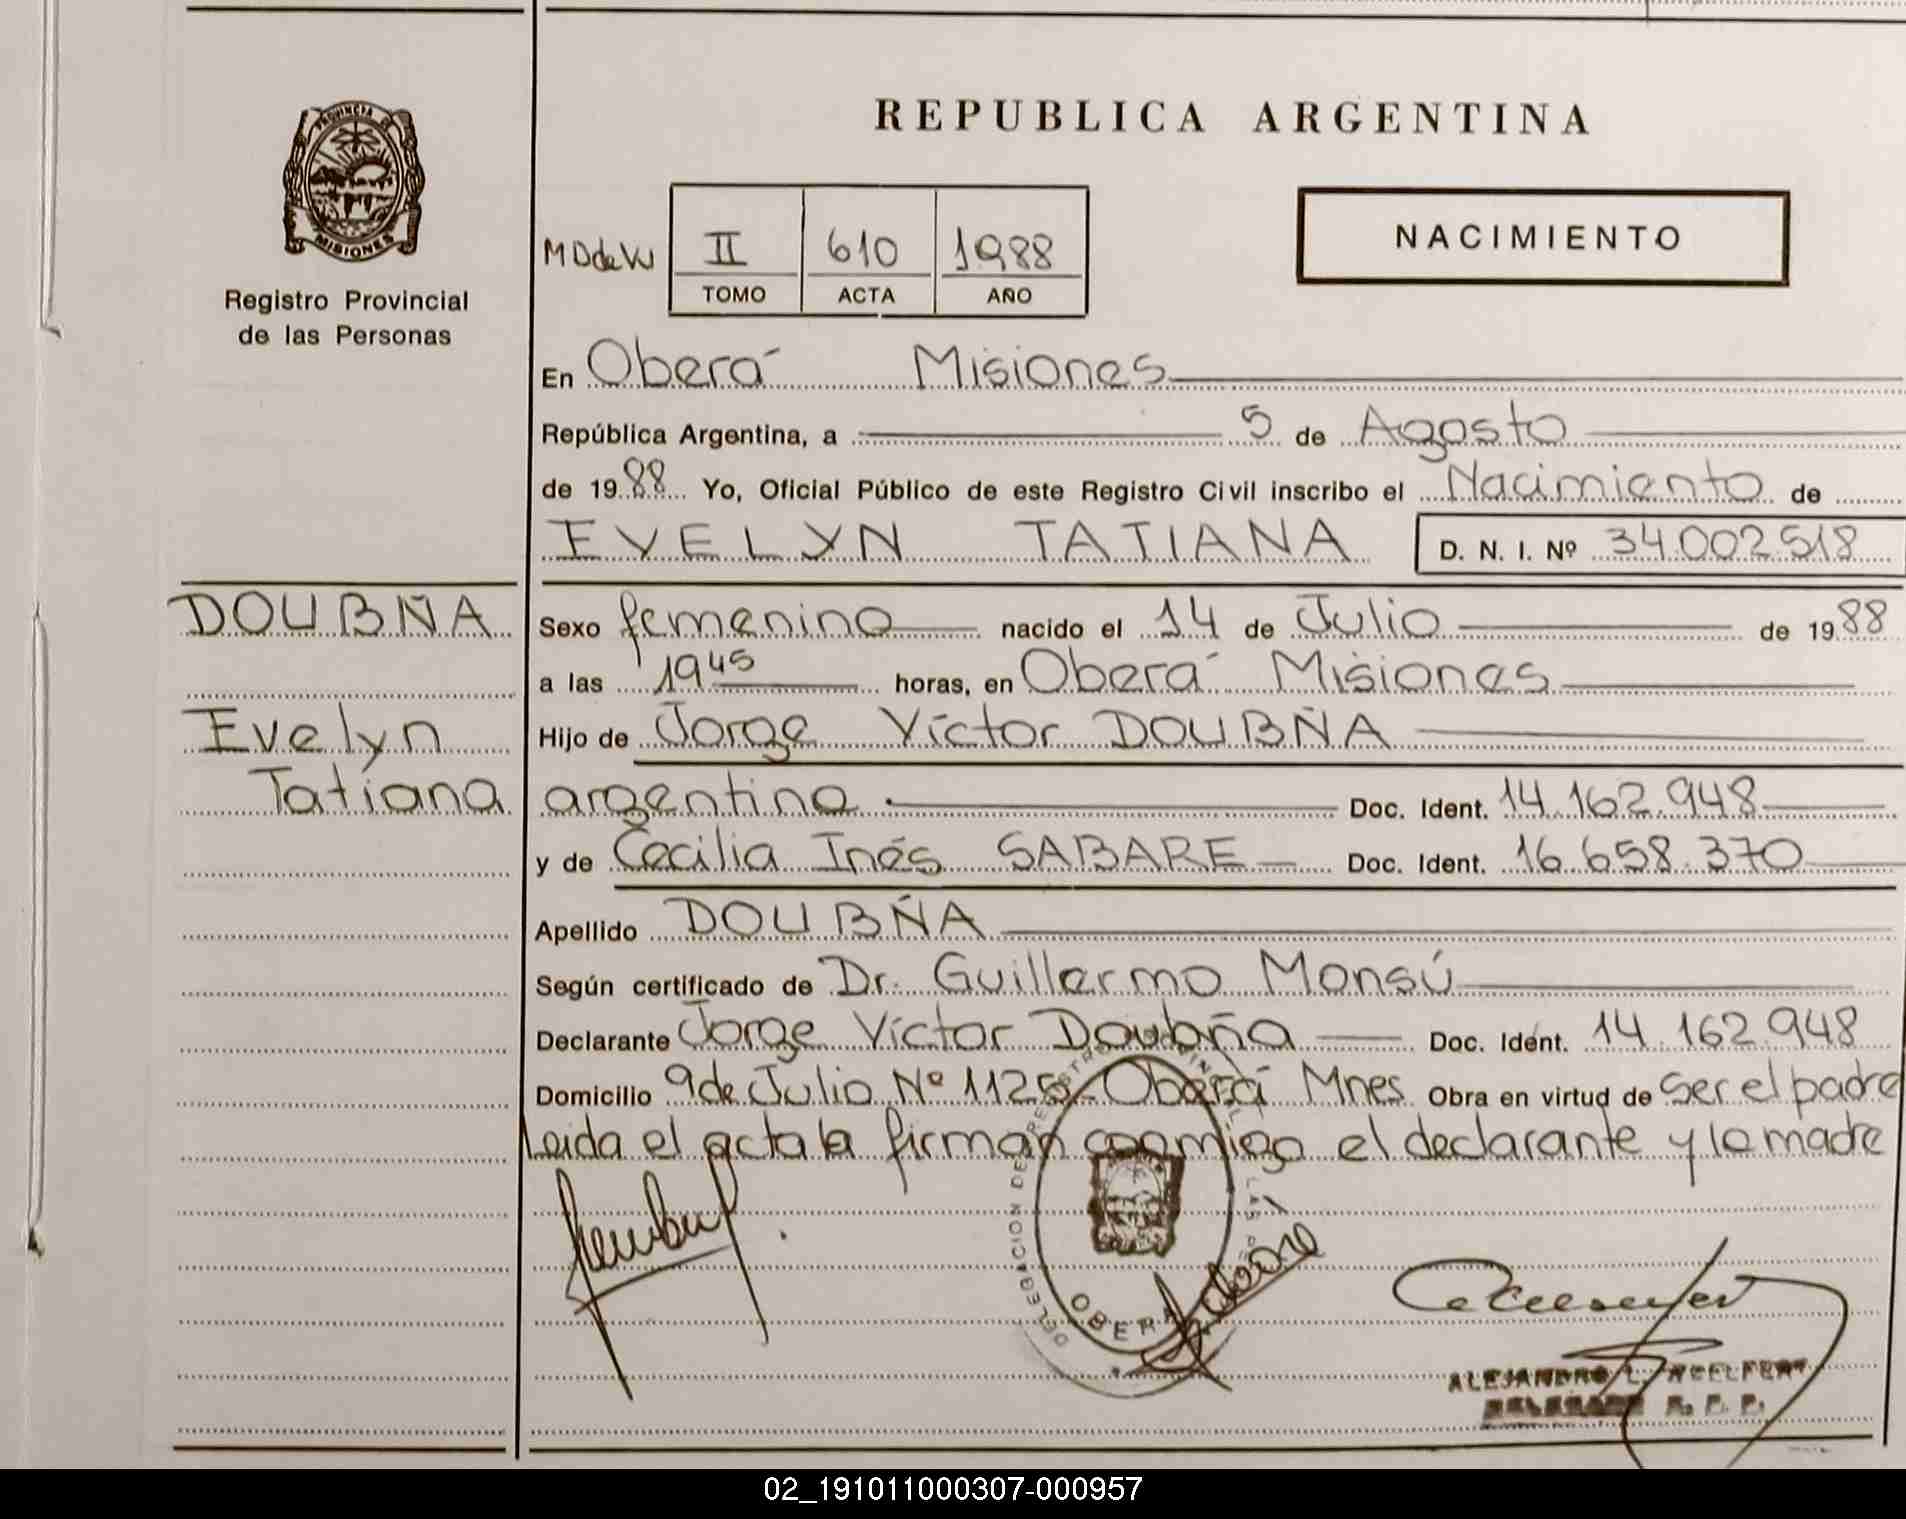 REPUBLICA ARGENTINA
PROVINCIA DE
MISIONES
Registro Provincial
de las Personas
NACIMIENTO
II 610 1988
TOMO ACTA AÑO
En Oberá Misiones
República Argentina, a 5 de Agosto
de 1988 Yo, Oficial Público de este Registro Civil inscribo el Nacimiento de
EVELYN TATIANA D. N. I. Nº 34.002.518
DOUBÑA
Evelyn
Tatiana
Sexo femenino nacido el 14 de Julio de 1988
a las 19 45 horas, en Oberá Misiones
Hijo de Jorge Víctor DOUBÑA
argentino Doc. Ident. 14.162.948
y de Cecilia Inés SABARE Doc. Ident. 16.658.370
Apellido DOUBÑA
Según certificado de Dr. Guillermo Monsú
Declarante Jorge Víctor Doubña Doc. Ident. 14.162.948
Domicilio 9 de Julio Nº 1125 Oberá Mnes Obra en virtud de ser el padre
Leida el acta la firman conmigo el declarante y la madre
DELEGACION DE REGISTRO LAS
OBERA
ALEJANDRO L.
DELEGADO R. P. P.
02_191011000307-000957